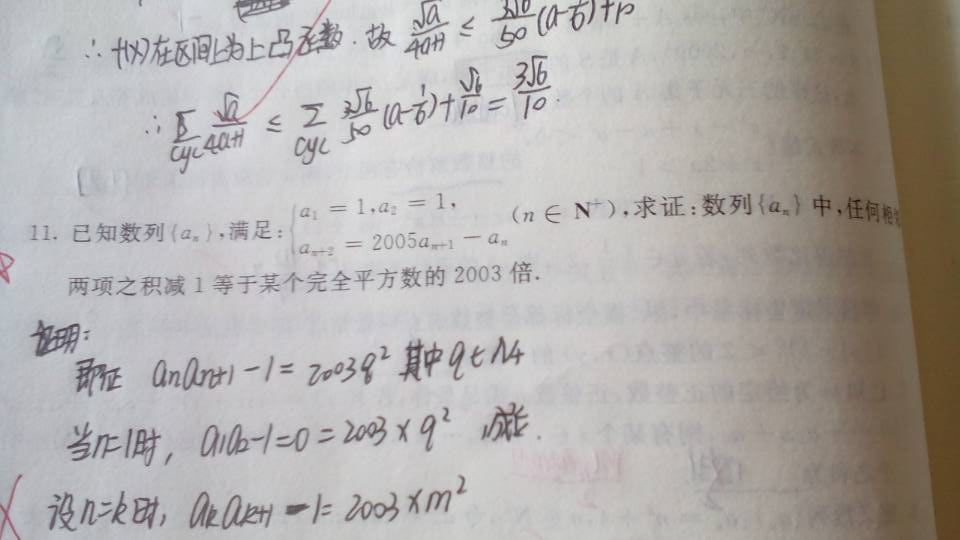 ∴ f(x)在区间上为上凸函数.故 √a/(4a+1) ≤ 3√6/50 (a-1/6)+
∴ Σcyc √a/(4a+1) ≤ Σcyc 3√6/50 (a-1/6)+√6/10 = 3√6/10
11. 已知数列{aₙ},满足:{a₁ = 1,a₂ = 1, aₙ₊₂ = 2005aₙ₊₁ − aₙ (n ∈ N⁺),求证:数列{aₙ}中,任何相
两项之积减 1 等于某个完全平方数的 2003 倍.
证明:
即证 aₙaₙ₊₁ -1 = 2003q² 其中 q∈N+
当n=1时, a₁a₂-1=0=2003×q² 成立
设n=k时, aₖaₖ₊₁ -1=2003×m²